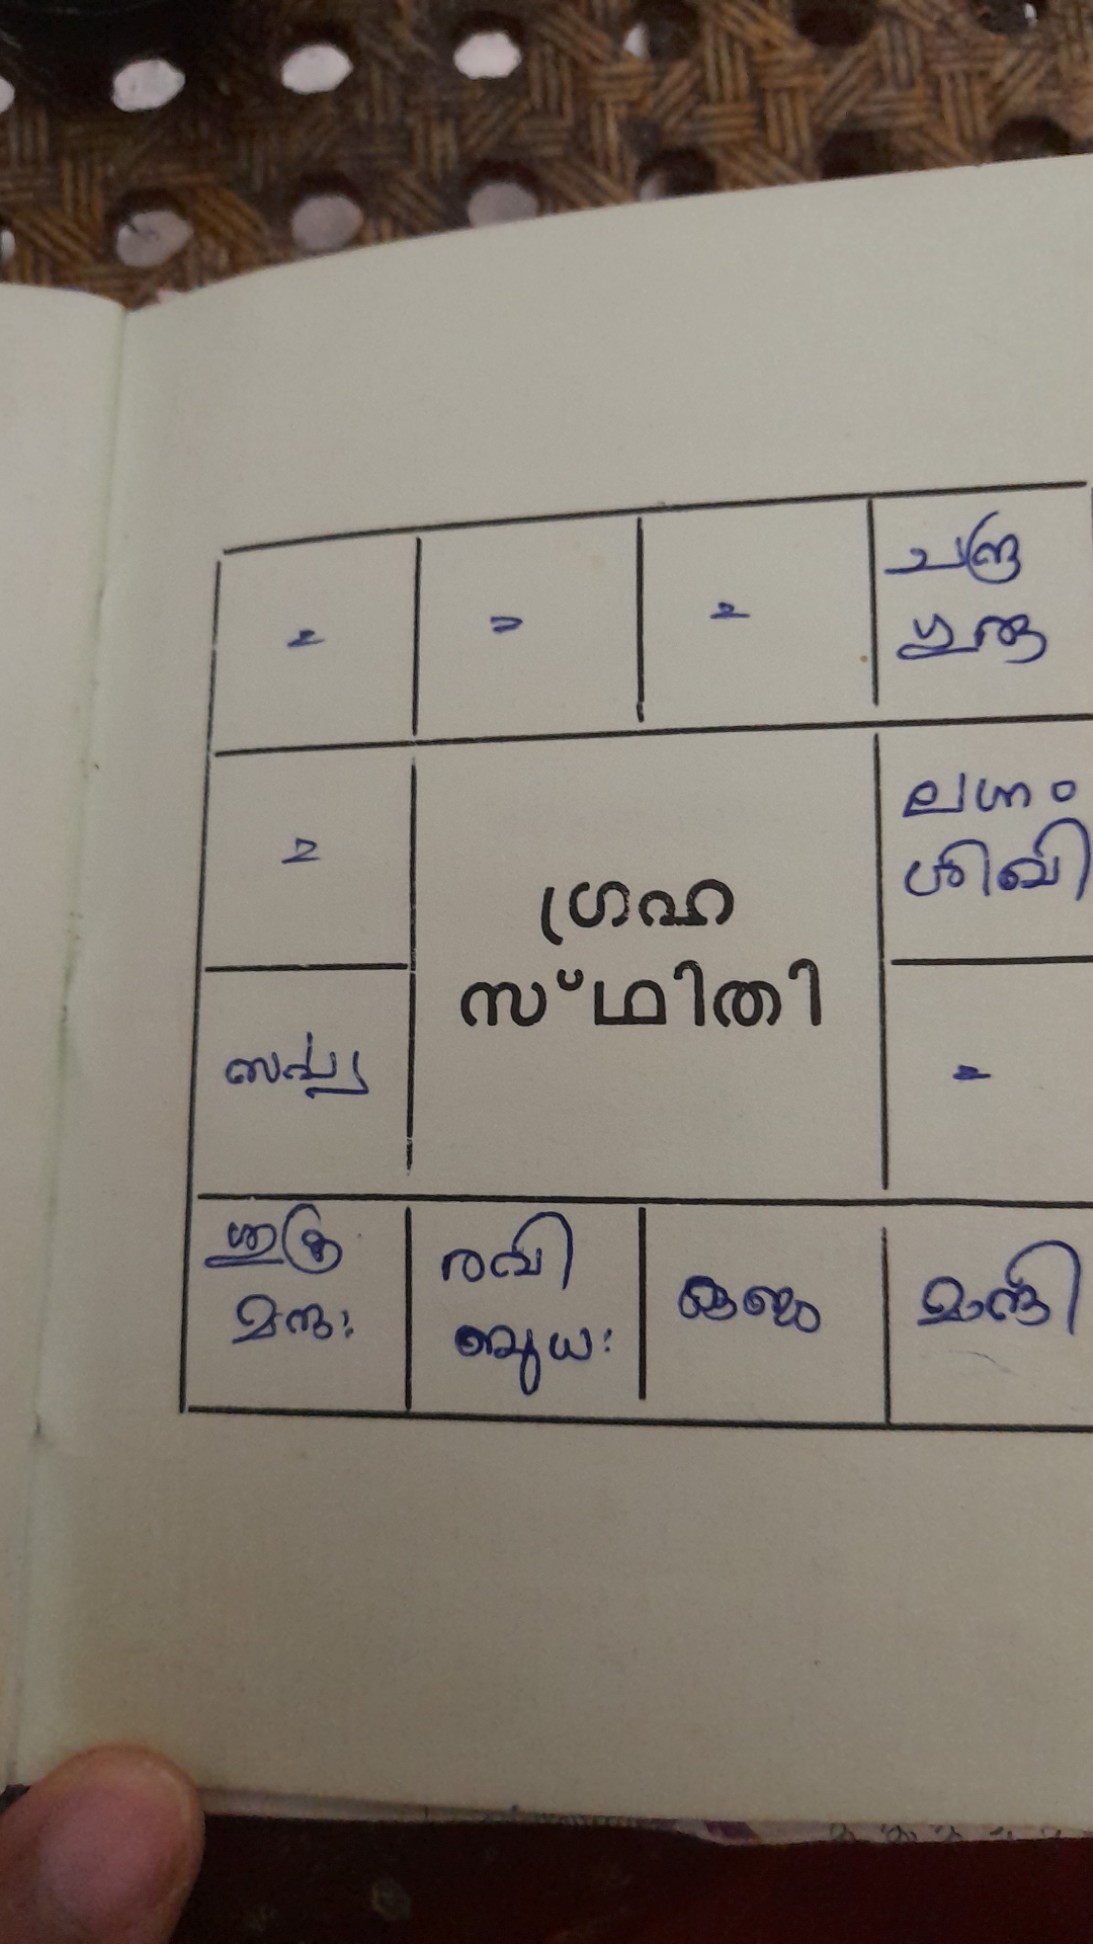 =
=
=
ചന്ദ്ര
ഗുരു
=
ഗ്രഹ
സ്ഥിതി
ലഗ്നം
ശിഖി
സർപ്പ
=
ശുക്ര
മന്ദഃ
രവി
ബുധഃ
കുജ
മാന്ദി